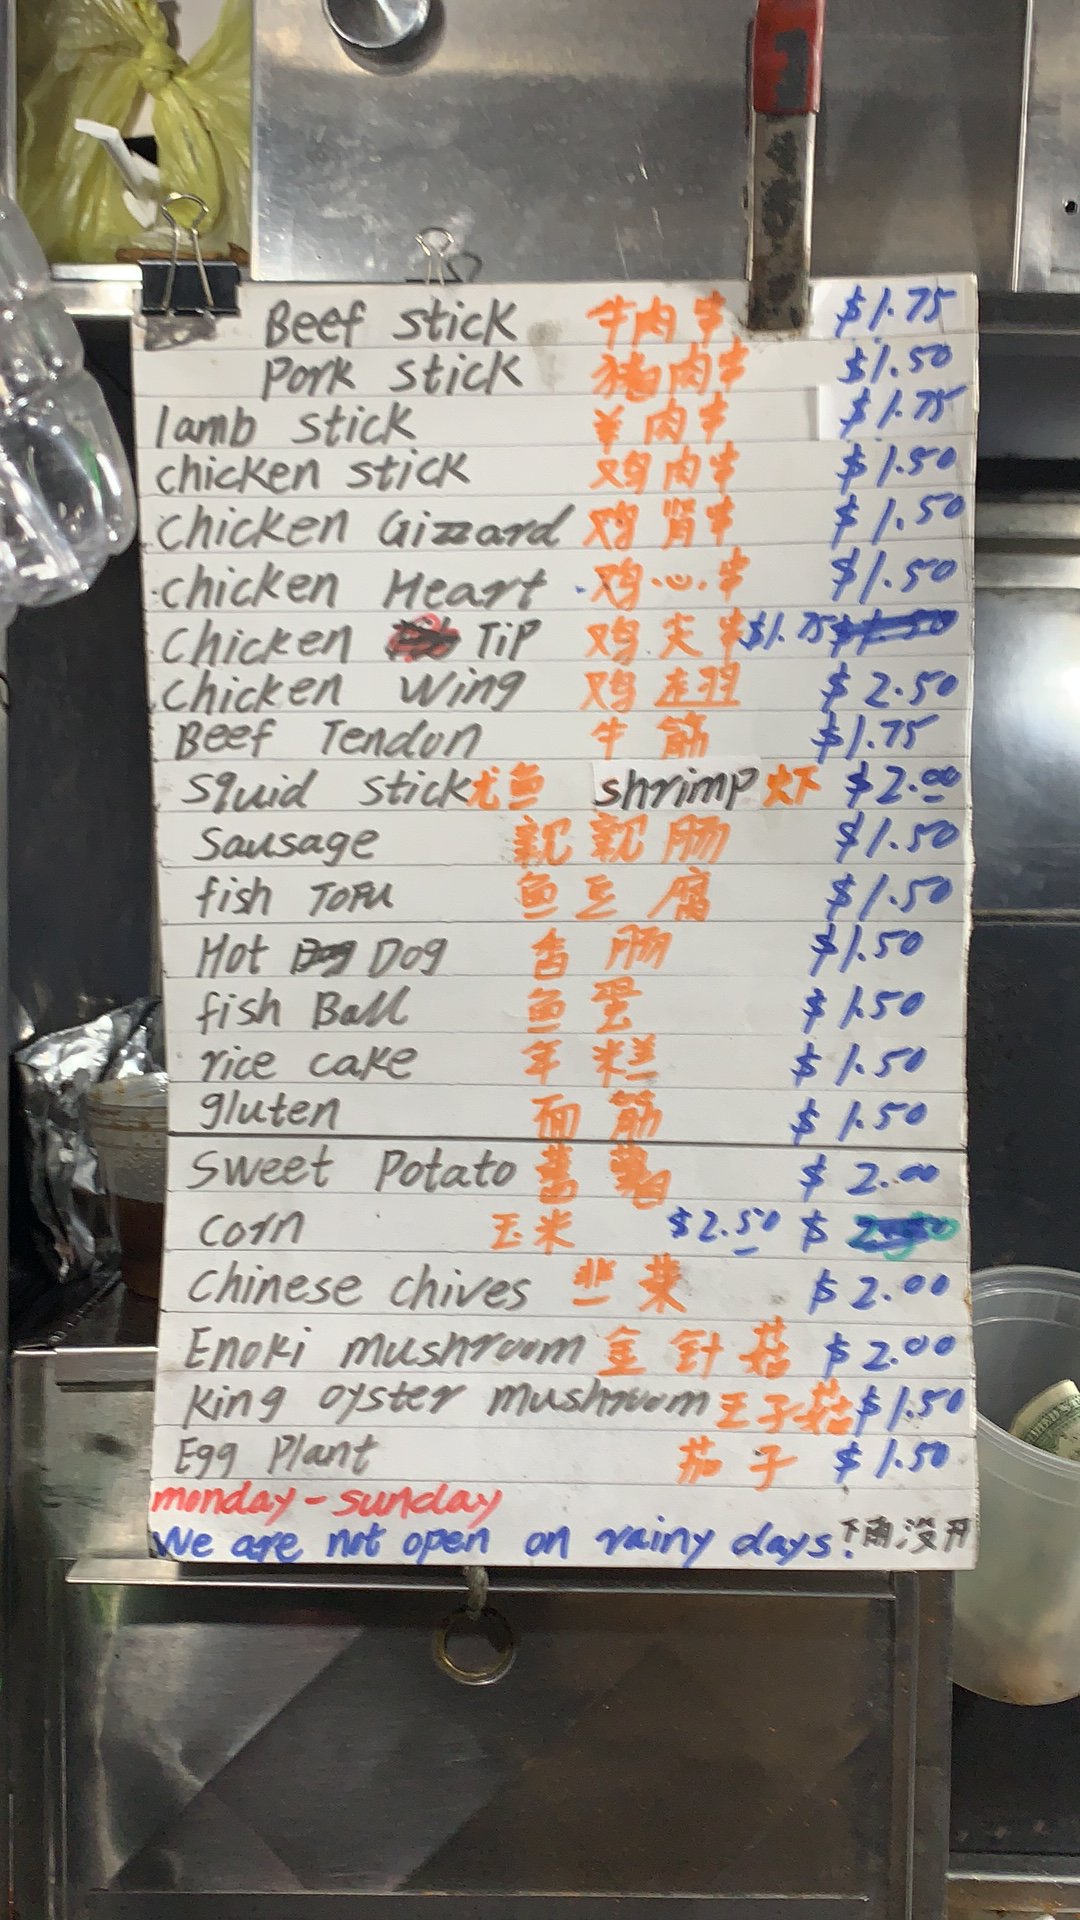 Beef stick 牛肉串 $1.75
Pork stick 猪肉串 $1.50
lamb stick 羊肉串 $1.75
chicken stick 鸡肉串 $1.50
Chicken Gizzard 鸡肾串 $1.50
chicken Heart 鸡心串 $1.50
Chicken TiP 鸡尖串 $1.75
Chicken Wing 鸡 $2.50
Beef Tendon 牛筋 $1.75
Squid stick 尤鱼 shrimp 虾 $2.00
Sausage 親親肠 $1.50
fish TOFU 鱼豆腐 $1.50
Hot Dog 香肠 $1.50
fish Ball 鱼蛋 $1.50
rice cake 年糕 $1.50
gluten 面筋 $1.50
Sweet Potato 蕃 $2.00
Corn 玉米 $2.50 $
Chinese chives 韭菜 $2.00
Enoki mushroom 金针菇 $2.00
King oyster mushroom 王子菇 $1.50
Egg Plant 茄子 $1.50
monday-sunday
We are not open on rainy days! 下雨没开